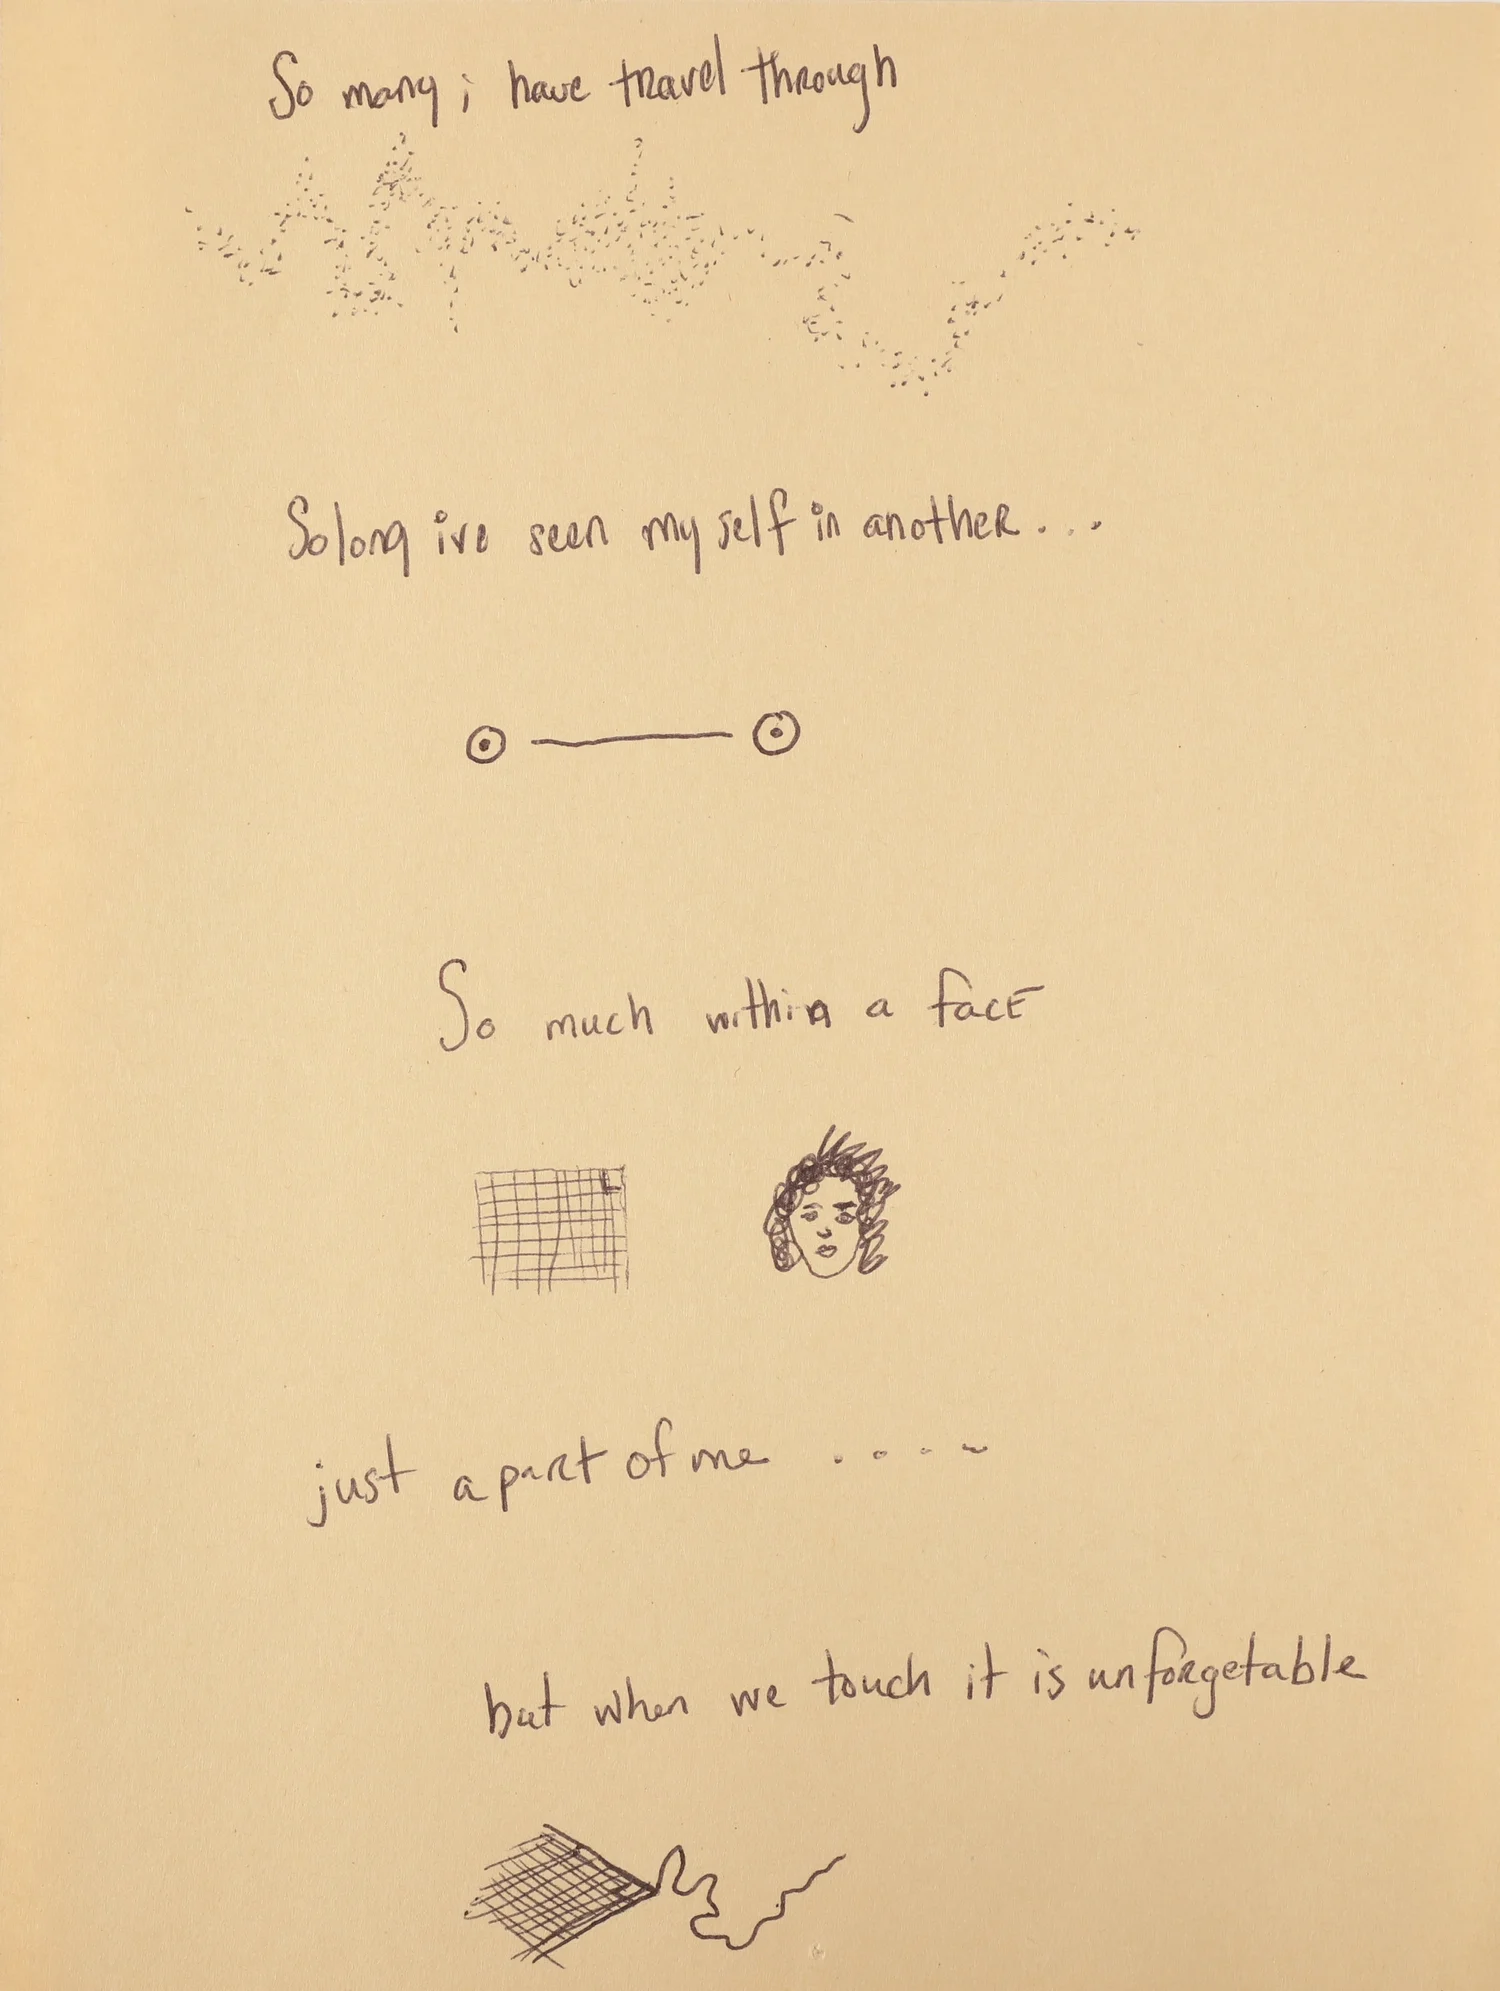 So many i have travel through
Solong ive seen my self in another...
So much within a face
just a part of me ....
but when we touch it is unforgetable